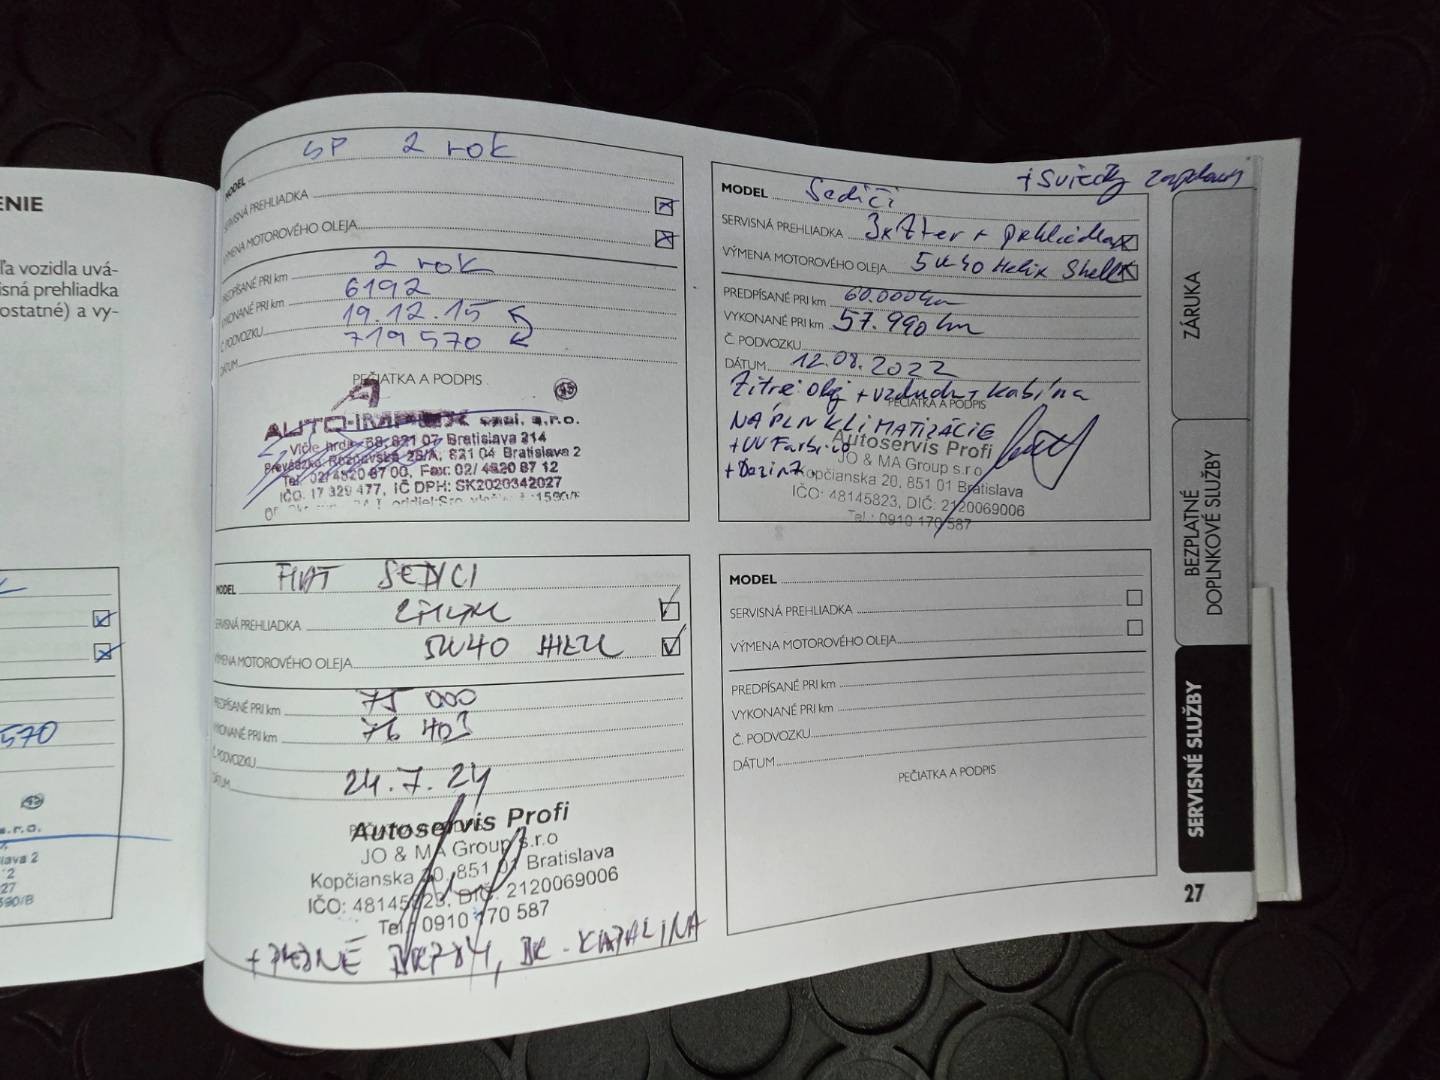 ENIE
ľa vozidla uvá-
isná prehliadka
ostatné) a vy-
570
s.r.o.
lava 2
SP 2 rok
MODEL
SERVISNÁ PREHLIADKA
VÝMENA MOTOROVÉHO OLEJA
PREDPÍSANÉ PRI km 2 rok
VYKONANÉ PRI km 6192
Č. PODVOZKU 19.12.15
DÁTUM 719570
PEČIATKA A PODPIS
AUTO-IMPEX spol. s.r.o.
Vlčie hrdlo 68, 821 07 Bratislava 214
Prevádzka: Rožňavská 28/A, 821 04 Bratislava 2
Tel. 02/ 4820 87 00, Fax: 02/ 4820 87 12
IČO: 17 329 477, IČ DPH: SK2020342027
+ Sviečky zapaľov
MODEL Sedici
SERVISNÁ PREHLIADKA 3x filter + prehliadka
VÝMENA MOTOROVÉHO OLEJA 5W40 Helix Shell
PREDPÍSANÉ PRI km 60.000 km
VYKONANÉ PRI km 57.990 km
Č. PODVOZKU
DÁTUM 12.08.2022
Filtre: Olej + vzduch + kabína
PEČIATKA A PODPIS
NÁPLN KLIMATIZÁCIE
+ UV Farbivo
+ Dezinf.
Autoservis Profi
JO & MA Group s.r.o
Kopčianska 20, 851 01 Bratislava
IČO: 48145823, DIČ: 2120069006
Tel.: 0910 170 587
MODEL FIAT SEDICI
SERVISNÁ PREHLIADKA
VÝMENA MOTOROVÉHO OLEJA 5W40
PREDPÍSANÉ PRI km 75 000
VYKONANÉ PRI km 76 403
Č. PODVOZKU
DÁTUM 24.7.24
Autoservis Profi
JO & MA Group s.r.o
Kopčianska 20, 851 01 Bratislava
IČO: 48145823, DIČ: 2120069006
Tel.: 0910 170 587
+ PREDNÉ BRZDY, BR. KVAPALINA
MODEL
SERVISNÁ PREHLIADKA
VÝMENA MOTOROVÉHO OLEJA
PREDPÍSANÉ PRI km
VYKONANÉ PRI km
Č. PODVOZKU
DÁTUM
PEČIATKA A PODPIS
ZÁRUKA
BEZPLATNÉ
DOPLNKOVÉ SLUŽBY
SERVISNÉ SLUŽBY
27